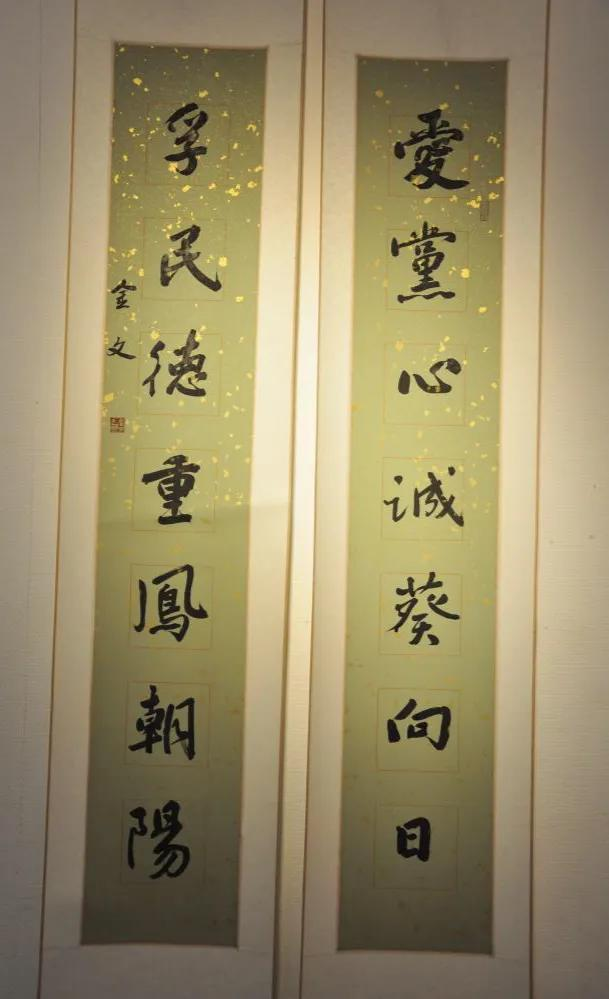 愛黨心诚葵向日
孚民德重鳳朝陽
金文